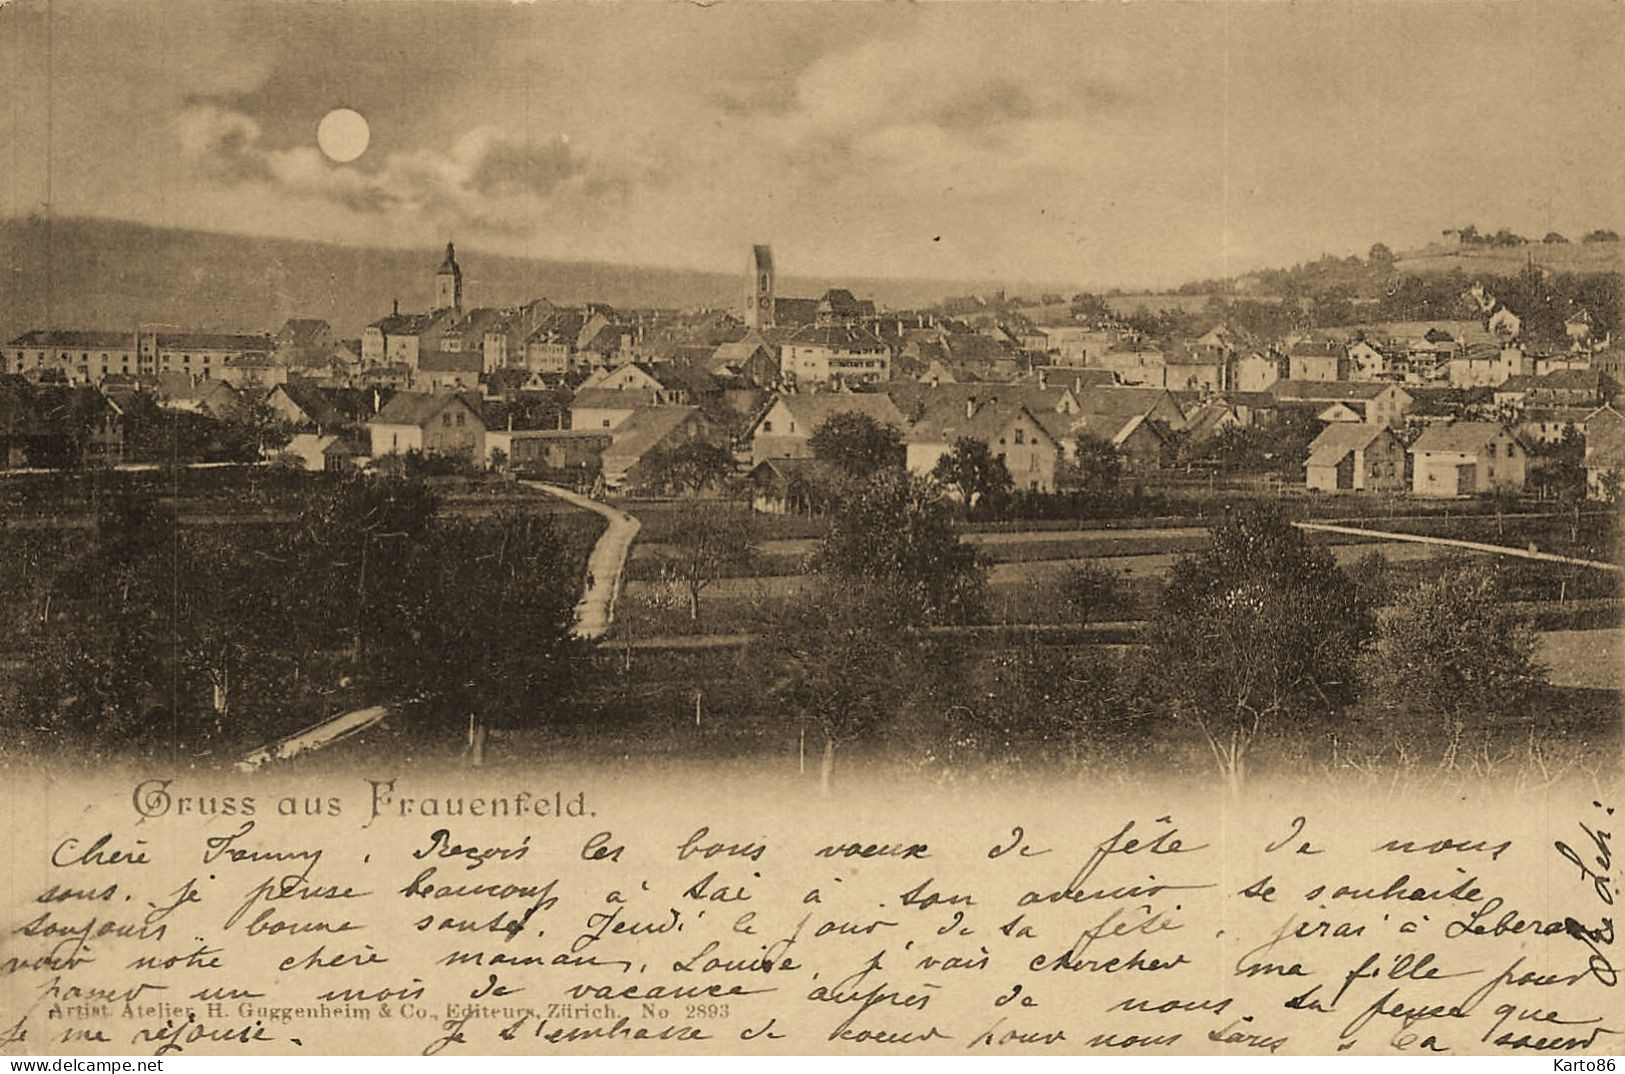 Gruss aus Frauenfeld.
Chère Fanny, Reçois les bons voeux de fête de nous
sous. je pense beaucoup à tai à ton avenir te souhaite
toujours bonne santé. Jeudi le jour de ta fête, j'irai à
voir notre chère maman, Louise, j'vais chercher ma fille pour
passer un mois de vacance auprès de nous tu pense que
Artist. Atelier H. Guggenheim & Co., Editeurs, Zürich. No 2893
je me réjouie. Je t'embrasse de coeur pour nous Ta soeur
delcampe.net
Karto86